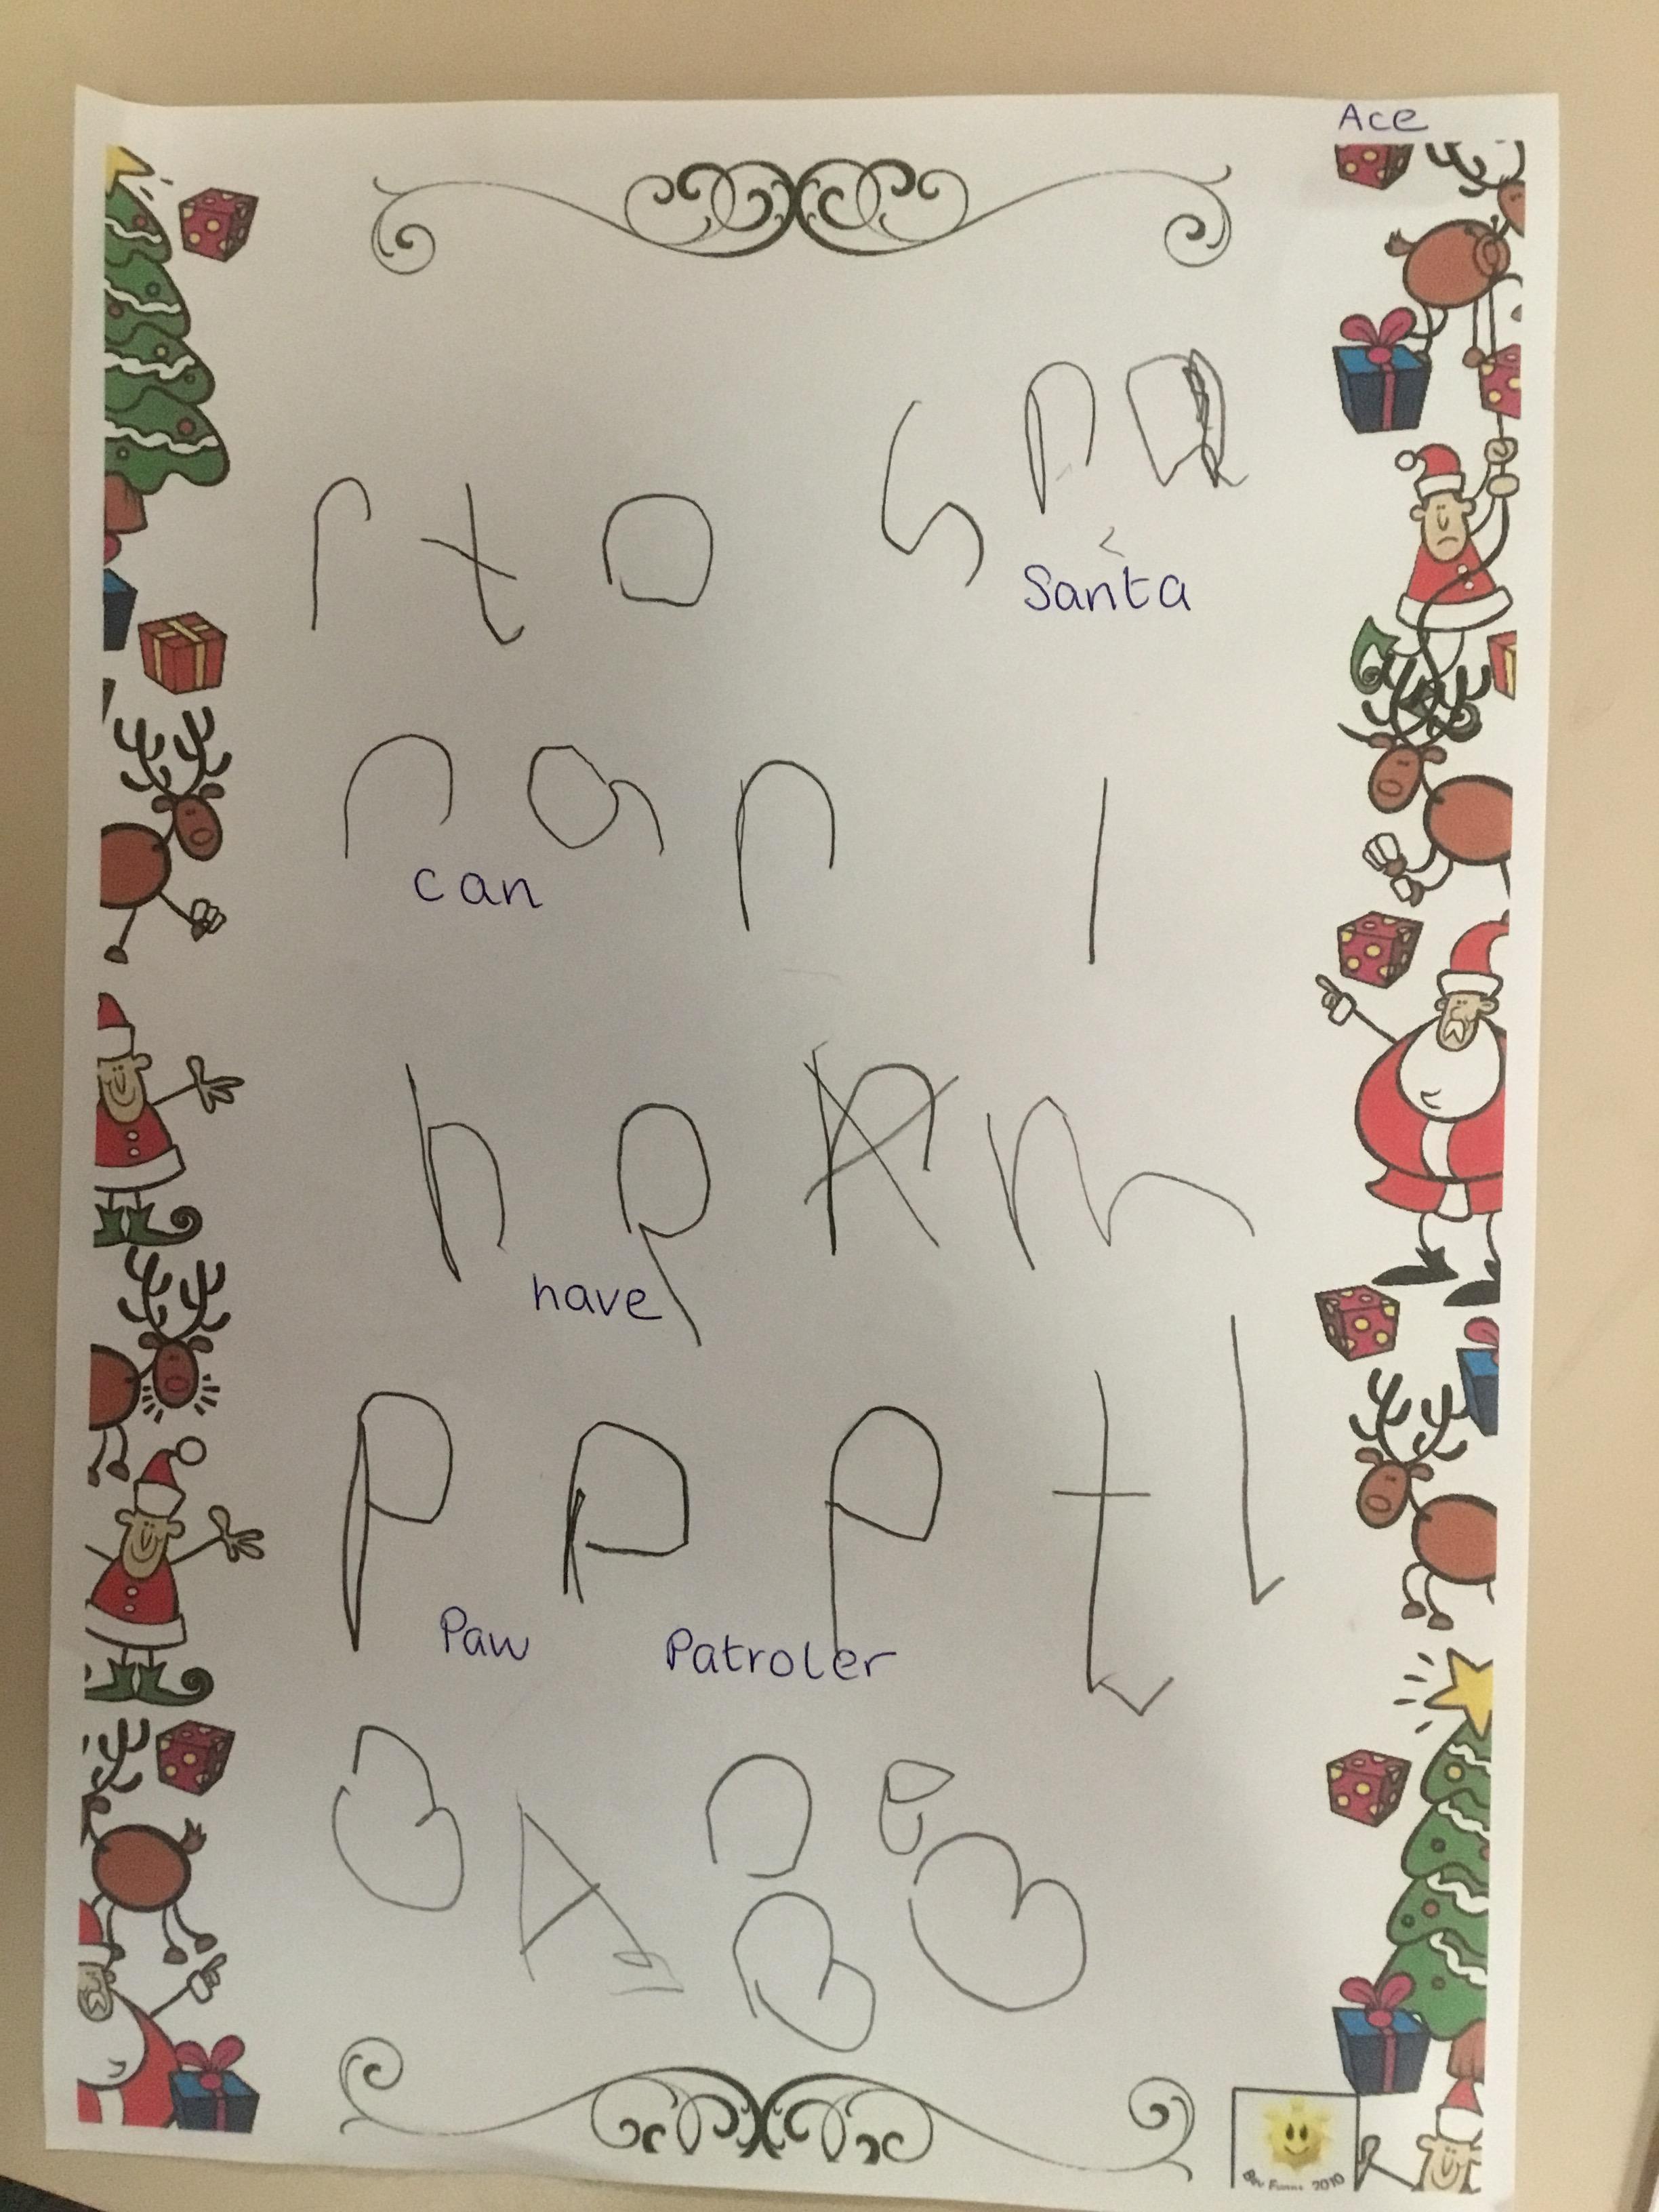 Ace
r t o s n a
Santa
c a n I
can
h p m
have
p p p t l
Paw Patroler
A c e